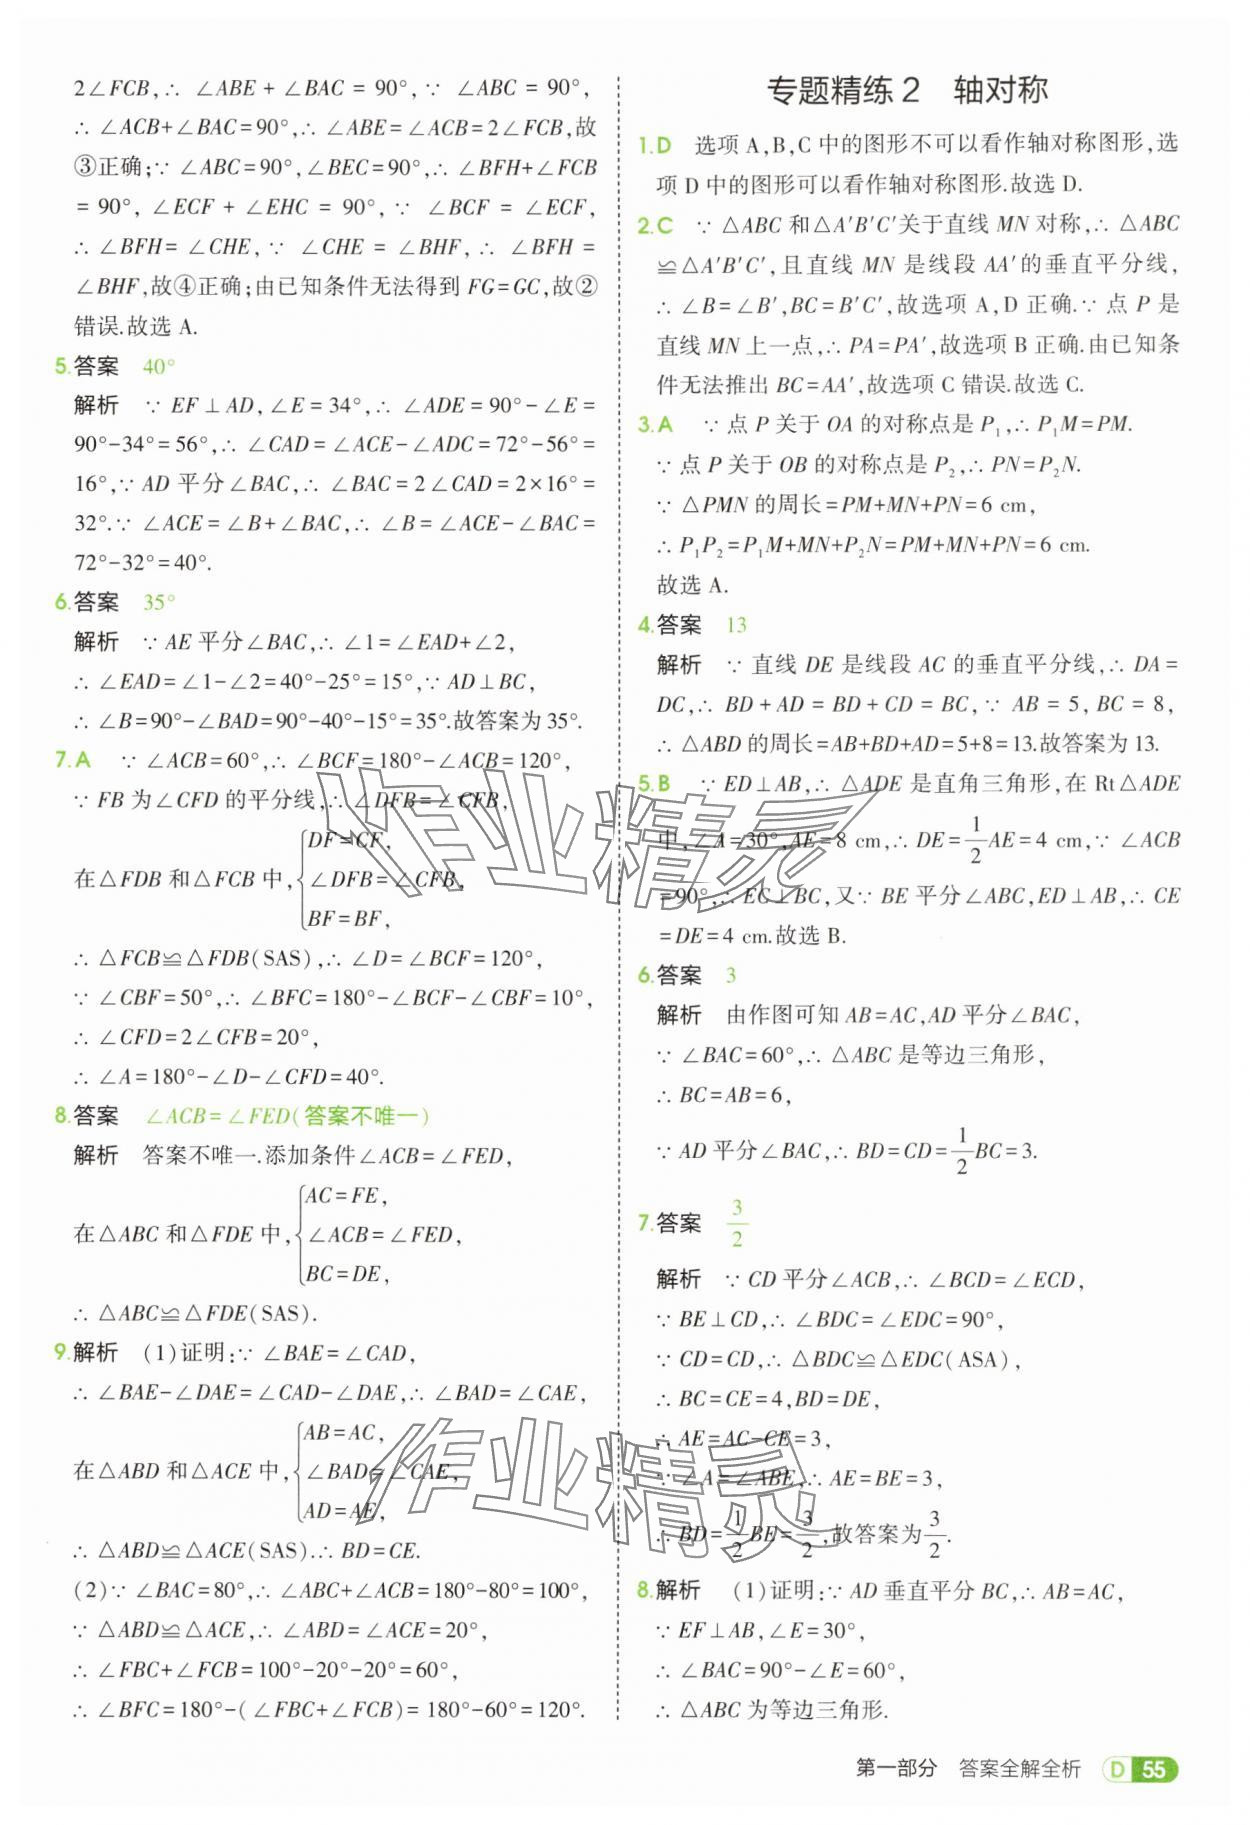 2∠FCB,∴ ∠ABE + ∠BAC = 90°,∵ ∠ABC = 90°,
∴ ∠ACB+∠BAC=90°,∴ ∠ABE=∠ACB=2∠FCB,故
③正确;∵ ∠ABC=90°,∠BEC=90°,∴ ∠BFH+∠FCB
= 90°, ∠ECF + ∠EHC = 90°, ∵ ∠BCF = ∠ECF,
∴ ∠BFH= ∠CHE, ∵ ∠CHE = ∠BHF, ∴ ∠BFH =
∠BHF,故④正确;由已知条件无法得到 FG=GC,故②
错误.故选 A.
5.答案 40°
解析 ∵ EF⊥AD,∠E=34°,∴ ∠ADE=90°-∠E=
90°-34°=56°,∴ ∠CAD=∠ACE-∠ADC=72°-56°=
16°,∵ AD 平分∠BAC,∴ ∠BAC=2∠CAD=2×16°=
32°.∵ ∠ACE=∠B+∠BAC,∴ ∠B=∠ACE-∠BAC=
72°-32°=40°.
6.答案 35°
解析 ∵ AE 平分∠BAC,∴ ∠1=∠EAD+∠2,
∴ ∠EAD=∠1-∠2=40°-25°=15°,∵ AD⊥BC,
∴ ∠B=90°-∠BAD=90°-40°-15°=35°.故答案为 35°.
7.A ∵ ∠ACB=60°,∴ ∠BCF=180°-∠ACB=120°,
∵ FB 为∠CFD 的平分线,∴ ∠DFB=∠CFB,
DF=CF,
在△FDB 和△FCB 中, ∠DFB=∠CFB,
BF=BF,
∴ △FCB≌△FDB(SAS),∴ ∠D=∠BCF=120°,
∵ ∠CBF=50°,∴ ∠BFC=180°-∠BCF-∠CBF=10°,
∴ ∠CFD=2∠CFB=20°,
∴ ∠A=180°-∠D-∠CFD=40°.
8.答案 ∠ACB=∠FED(答案不唯一)
解析 答案不唯一.添加条件∠ACB=∠FED,
AC=FE,
在△ABC 和△FDE 中, ∠ACB=∠FED,
BC=DE,
∴ △ABC≌△FDE(SAS).
9.解析 (1)证明:∵ ∠BAE=∠CAD,
∴ ∠BAE-∠DAE=∠CAD-∠DAE,∴ ∠BAD=∠CAE,
AB=AC,
在△ABD 和△ACE 中, ∠BAD=∠CAE,
AD=AE,
∴ △ABD≌△ACE(SAS).∴ BD=CE.
(2)∵ ∠BAC=80°,∴ ∠ABC+∠ACB=180°-80°=100°,
∵ △ABD≌△ACE,∴ ∠ABD=∠ACE=20°,
∴ ∠FBC+∠FCB=100°-20°-20°=60°,
∴ ∠BFC=180°-(∠FBC+∠FCB)=180°-60°=120°.
专题精练 2 轴对称
1.D 选项 A,B,C 中的图形不可以看作轴对称图形,选
项 D 中的图形可以看作轴对称图形.故选 D.
2.C ∵ △ABC 和△A′B′C′关于直线 MN 对称,∴ △ABC
≌△A′B′C′,且直线 MN 是线段 AA′的垂直平分线,
∴ ∠B=∠B′,BC=B′C′,故选项 A,D 正确.∵ 点 P 是
直线 MN 上一点,∴ PA=PA′,故选项 B 正确.由已知条
件无法推出 BC=AA′,故选项 C 错误.故选 C.
3.A ∵ 点 P 关于 OA 的对称点是 P₁,∴ P₁M=PM.
∵ 点 P 关于 OB 的对称点是 P₂,∴ PN=P₂N.
∵ △PMN 的周长=PM+MN+PN=6 cm,
∴ P₁P₂=P₁M+MN+P₂N=PM+MN+PN=6 cm.
故选 A.
4.答案 13
解析 ∵ 直线 DE 是线段 AC 的垂直平分线,∴ DA=
DC,∴ BD + AD = BD + CD = BC,∵ AB = 5, BC = 8,
∴ △ABD 的周长=AB+BD+AD=5+8=13.故答案为 13.
5.B ∵ ED⊥AB,∴ △ADE 是直角三角形,在 Rt△ADE
中,∠A=30°,AE=8 cm,∴ DE=1/2AE=4 cm,∵ ∠ACB
=90°,∴ EC⊥BC,又∵ BE 平分∠ABC,ED⊥AB,∴ CE
=DE=4 cm.故选 B.
6.答案 3
解析 由作图可知 AB=AC,AD 平分∠BAC,
∵ ∠BAC=60°,∴ △ABC 是等边三角形,
∴ BC=AB=6,
∵ AD 平分∠BAC,∴ BD=CD=1/2BC=3.
7.答案 3/2
解析 ∵ CD 平分∠ACB,∴ ∠BCD=∠ECD,
∵ BE⊥CD,∴ ∠BDC=∠EDC=90°,
∵ CD=CD,∴ △BDC≌△EDC(ASA),
∴ BC=CE=4,BD=DE,
∴ AE=AC-CE=3,
∵ ∠A=∠ABE,∴ AE=BE=3,
∴ BD=1/2BE=3/2,故答案为3/2.
8.解析 (1)证明:∵ AD 垂直平分 BC,∴ AB=AC,
∵ EF⊥AB,∠E=30°,
∴ ∠BAC=90°-∠E=60°,
∴ △ABC 为等边三角形.
第一部分 答案全解全析 D 55
作业精灵
作业精灵